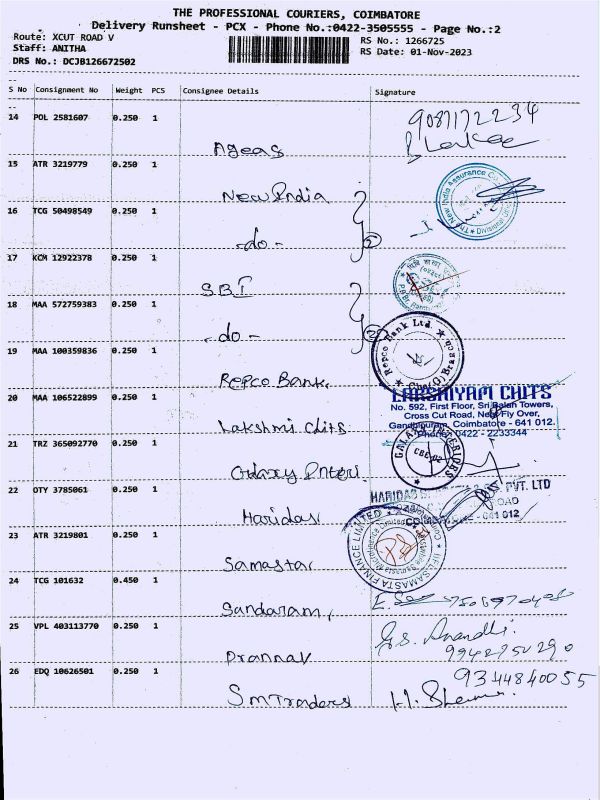 THE PROFESSIONAL COURIERS, COIMBATORE
Delivery Runsheet - PCX - Phone No.:0422-3505555 - Page No.:2
Route: XCUT ROAD V
RS No.: 1266725
Staff: ANITHA
RS Date: 01-Nov-2023
DRS No.: DCJB126672502
S No Consignment No Weight PCS Consignee Details Signature
14 POL 2581607 0.250 1
9087172234
Ageas
15 ATR 3219779 0.250 1
New India
The New India Assurance
16 TCG 50498549 0.250 1
-do- 2
17 KCM 12922378 0.250 1
SBI
18 MAA 572759383 0.250 1
-do- 2
Repco Bank Ltd.
19 MAA 100359836 0.250 1
Repco Bank.
20 MAA 106522899 0.250 1
LAKSHIYAM CHITS
No. 592, First Floor, Sri Balah Towers,
Cross Cut Road, New Fly Over,
Gandhipuram, Coimbatore - 641 012.
Phone: 0422 - 2233344
Lakshmi Chits
21 TRZ 365092770 0.250 1
Galaxy Interi
22 OTY 3785061 0.250 1
HARIDAS PVT. LTD
ROAD
COIMBATORE - 641 012
Haridas
23 ATR 3219801 0.250 1
IFL SAMASTA FINANCE LIMITED
Samasta
24 TCG 101632 0.450 1
Sundaram,
25 VPL 403113770 0.250 1
G.S. Anandhi.
Prannav
26 EDQ 10626501 0.250 1
9344840055
Sm Traders